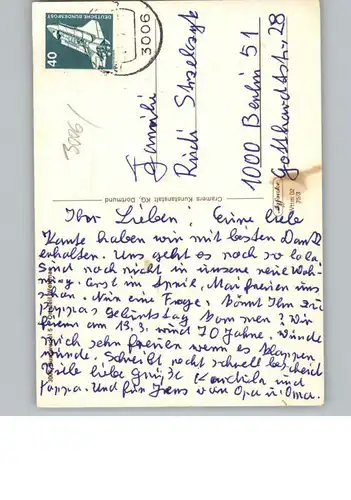 DEUTSCHE BUNDESPOST
40
3006
3006/
Familie
Rudi
1000 Berlin 51
Gotthardtstr 28
Cramers Kunstanstalt KG, Dortmund
Ihr Lieben! Eure liebe
Karte haben wir mit besten Dank
erhalten. Uns geht es noch so lala.
Sind noch nicht in unsere neue Woh-
nung. Erst im April. Mai freuen uns
schon. Nun eine Frage. Könnt Ihr zu
Pappas Geburtstag kommen? Wir
feiern am 13.3. wird 70 Jahre. Würde
mich sehr freuen wenn es klappen
würde. Schreibt recht schnell bescheid
Viele liebe Grüße und
Pappa. Und für Jens von Opa u. Oma.